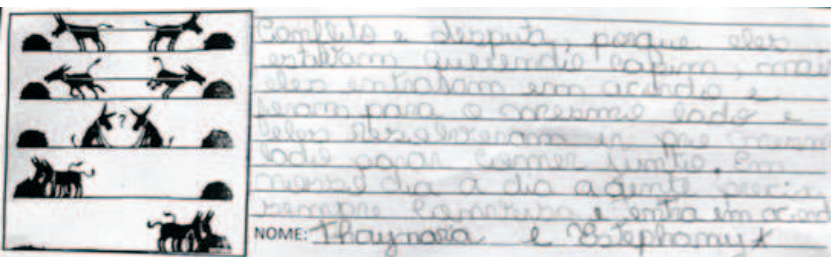 ?
Conflito e desputa, porque eles
estavam querendo capim, mais
eles entraram em acordo e
foram para o mesmo lado e
eles resolveram ir pro mesmo
lado para comer junto. Em
nosso dia a dia a gente precisa
sempre conversa e entra em acord
NOME: Thaynara e Estephany